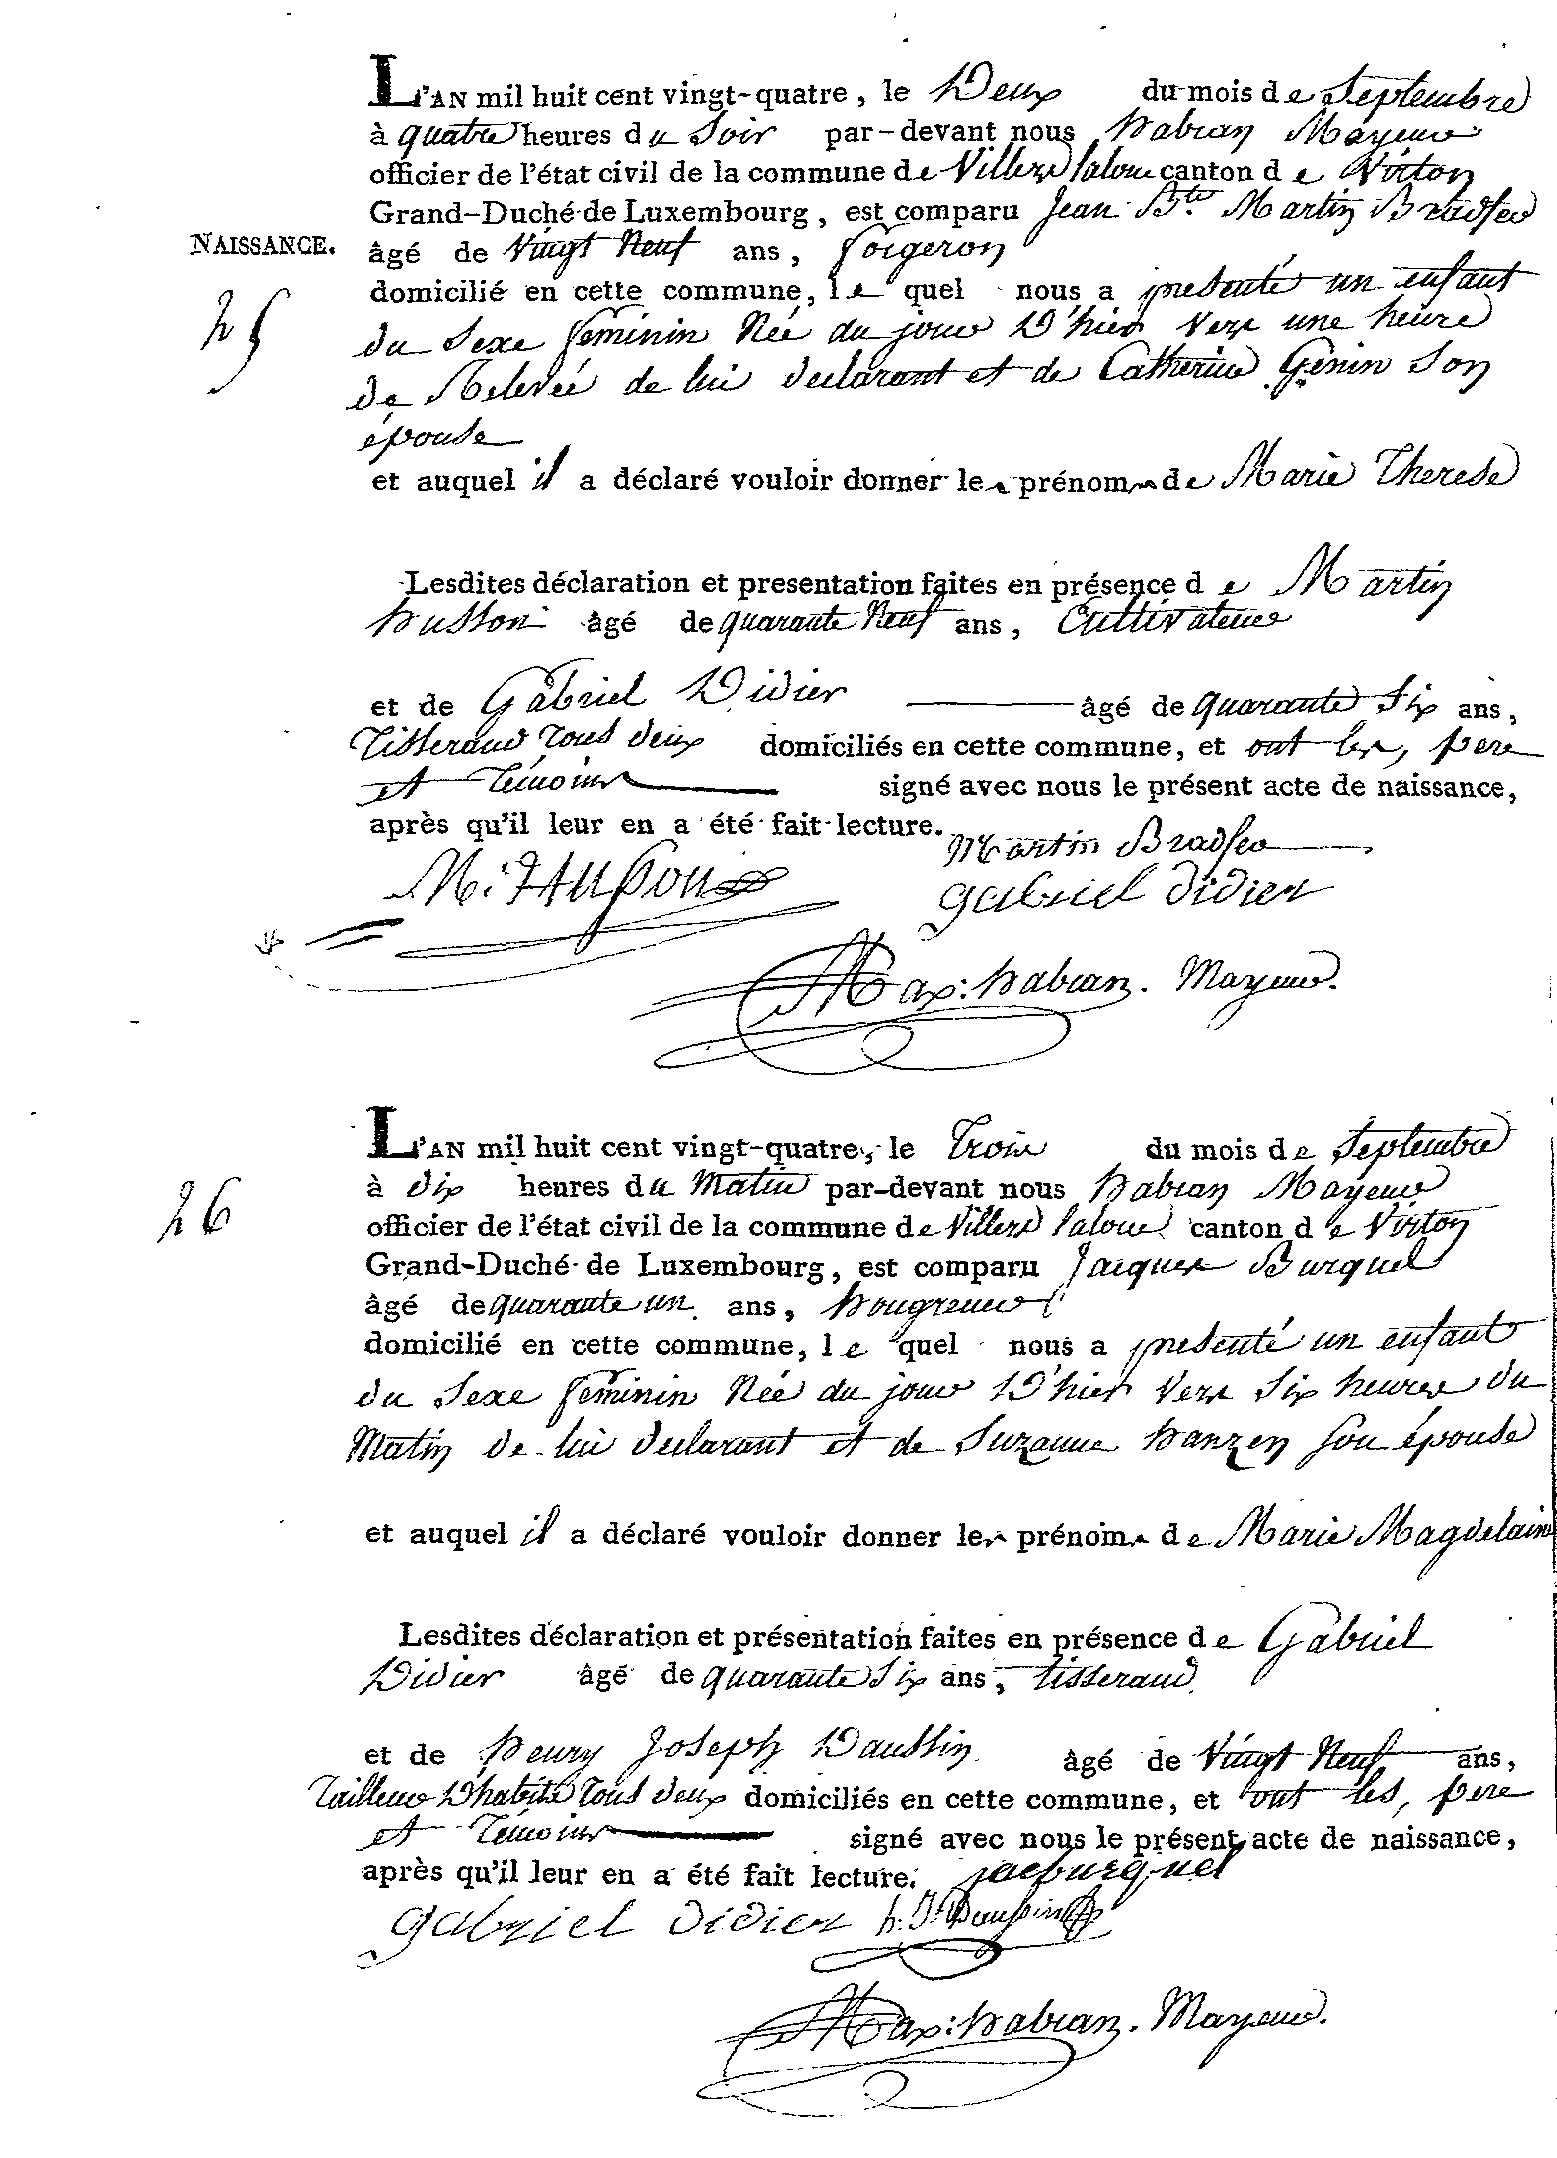 L'AN mil huit cent vingt-quatre, le Deux du mois de Septembre
à quatre heures du Soir par-devant nous habran Mayeur
officier de l'état civil de la commune de Villers laloue canton de Virton
Grand-Duché de Luxembourg, est comparu Jean Bte Martin Bradfer
NAISSANCE. âgé de Vingt Neuf ans, forgeron
25 domicilié en cette commune, le quel nous a presenté un enfant
du Sexe feminin Née du jour D'hier vers une heure
de Relevée de lui declarant et de Catherine Genin Son
épouse
et auquel il a déclaré vouloir donner les prénoms de Marie Therese
Lesdites déclaration et presentation faites en présence de Martin
husson âgé de quarante Neuf ans, Cultivateur
et de Gabriel Didier âgé de quarante Six ans,
Tisserand Tous deux domiciliés en cette commune, et ont les, pere
et Témoins signé avec nous le présent acte de naissance,
après qu'il leur en a été fait lecture. Martin Bradfer
M: Husson gabriel didier
Max: habran. Mayeur.
L'AN mil huit cent vingt-quatre, le Trois du mois de Septembre
26 à dix heures du Matin par-devant nous habran Mayeur
officier de l'état civil de la commune de Villers laloue canton de Virton
Grand-Duché de Luxembourg, est comparu Jacques Burquel
âgé de quarante un ans, hongreur
domicilié en cette commune, le quel nous a presenté un enfant
du Sexe feminin Née du jour D'hier vers Six heures du
Matin de lui declarant et de Suzanne hanzen son épouse
et auquel il a déclaré vouloir donner les prénoms de Marie Magdelaine
Lesdites déclaration et présentation faites en présence de Gabriel
Didier âgé de quarante Six ans, Tisserand
et de henry Joseph Daussin âgé de Vingt Neuf ans,
Tailleur D'habits Tous deux domiciliés en cette commune, et ont les, pere
et Témoins signé avec nous le présent acte de naissance,
après qu'il leur en a été fait lecture. jacburquel
gabriel didier h: J: Daussin
Max: habran. Mayeur.